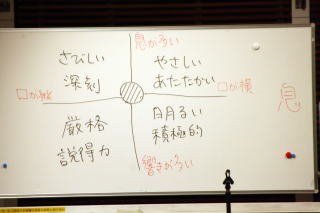 息が多い
さびしい
深刻
やさしい
あたたかい
口が縦
口が横
息
厳格
説得力
明るい
積極的
響きが多い